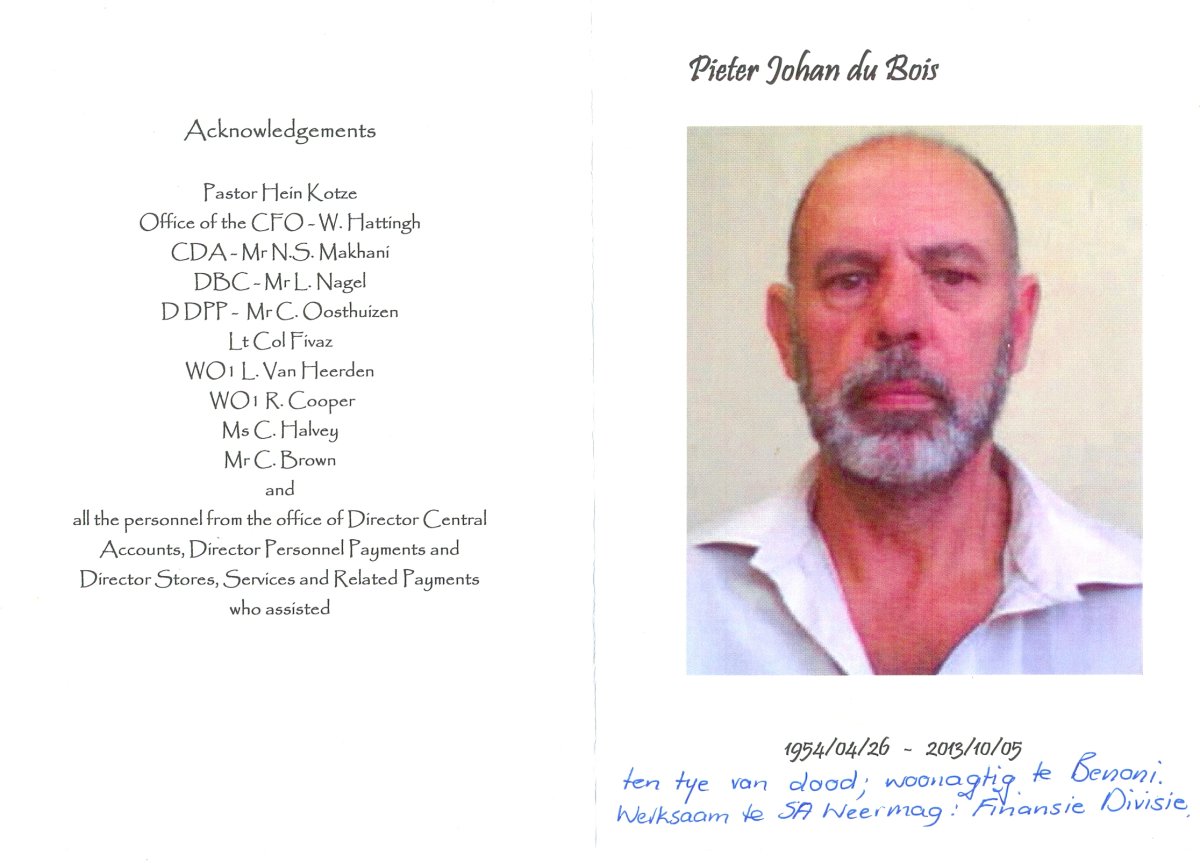 Acknowledgements
Pastor Hein Kotze
Office of the CFO - W. Hattingh
CDA - Mr N.S. Makhani
DBC - Mr L. Nagel
D DPP - Mr C. Oosthuizen
Lt Col Fivaz
WO1 L. Van Heerden
WO1 R. Cooper
Ms C. Halvey
Mr C. Brown
and
all the personnel from the office of Director Central
Accounts, Director Personnel Payments and
Director Stores, Services and Related Payments
who assisted
Pieter Johan du Bois
1954/04/26 - 2013/10/05
ten tye van dood; woonagtig te Benoni.
Werksaam te SA Weermag: Finansie Divisie.